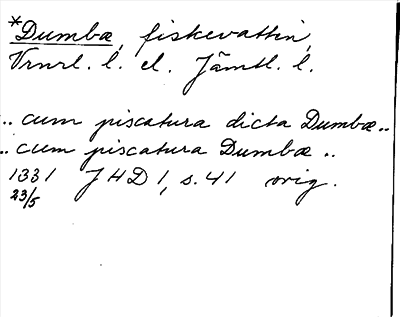 *Dumbæ, fiskevattin,
Vrml. l. el. Jämtl. l.
.. cum piscatura dicta Dumbæ ..
.. cum piscatura Dumbæ ..
1331 JHD 1, s. 41 orig.
23/5